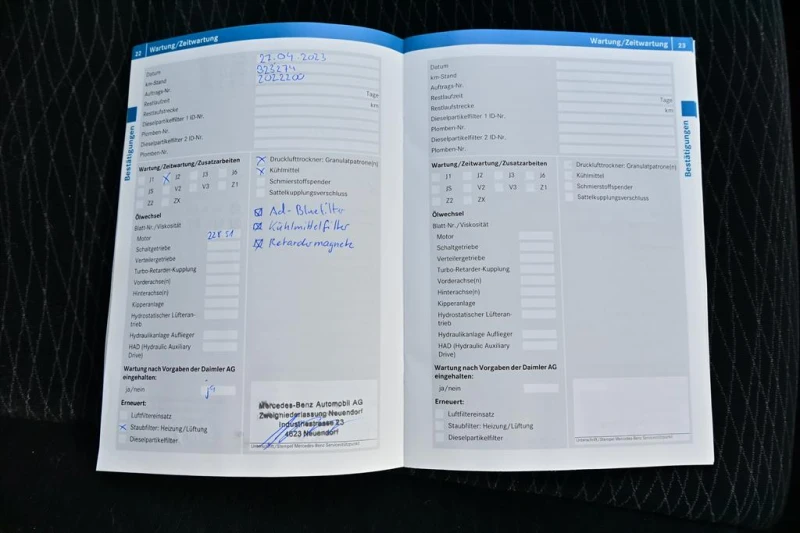 22 Wartung/Zeitwartung
Datum 27.04.2023
km-Stand 823274
Auftrags-Nr. 2022200
Restlaufzeit Tage
Restlaufstrecke km
Dieselpartikelfilter 1 ID-Nr.
Plomben-Nr.
Dieselpartikelfilter 2 ID-Nr.
Plomben-Nr.
Bestätigungen
Wartung/Zeitwartung/Zusatzarbeiten
J1 X J2 J3 J4
J5 V2 V3 Z1
Z2 ZX
Ölwechsel
Blatt-Nr./Viskosität
Motor 228.51
Schaltgetriebe
Verteilergetriebe
Turbo-Retarder-Kupplung
Vorderachse(n)
Hinterachse(n)
Kipperanlage
Hydrostatischer Lüfteran-
trieb
Hydraulikanlage Auflieger
HAD (Hydraulic Auxiliary
Drive)
Wartung nach Vorgaben der Daimler AG
eingehalten:
ja/nein ja
Erneuert:
Luftfiltereinsatz
X Staubfilter: Heizung/Lüftung
Dieselpartikelfilter
X Drucklufttrockner: Granulatpatrone(n)
X Kühlmittel
Schmierstoffspender
Sattelkupplungsverschluss
Ad-Bluefilter
Kühlmittelfilter
Retardermagnete
Mercedes-Benz Automobil AG
Zweigniederlassung Neuendorf
Industriestrasse 23
4623 Neuendorf
Unterschrift/Stempel Mercedes-Benz Servicestützpunkt
Wartung/Zeitwartung 23
Datum
km-Stand
Auftrags-Nr.
Restlaufzeit Tage
Restlaufstrecke km
Dieselpartikelfilter 1 ID-Nr.
Plomben-Nr.
Dieselpartikelfilter 2 ID-Nr.
Plomben-Nr.
Bestätigungen
Wartung/Zeitwartung/Zusatzarbeiten
J1 J2 J3 J4
J5 V2 V3 Z1
Z2 ZX
Ölwechsel
Blatt-Nr./Viskosität
Motor
Schaltgetriebe
Verteilergetriebe
Turbo-Retarder-Kupplung
Vorderachse(n)
Hinterachse(n)
Kipperanlage
Hydrostatischer Lüfteran-
trieb
Hydraulikanlage Auflieger
HAD (Hydraulic Auxiliary
Drive)
Wartung nach Vorgaben der Daimler AG
eingehalten:
ja/nein
Erneuert:
Luftfiltereinsatz
Staubfilter: Heizung/Lüftung
Dieselpartikelfilter
Drucklufttrockner: Granulatpatrone(n)
Kühlmittel
Schmierstoffspender
Sattelkupplungsverschluss
Unterschrift/Stempel Mercedes-Benz Servicestützpunkt